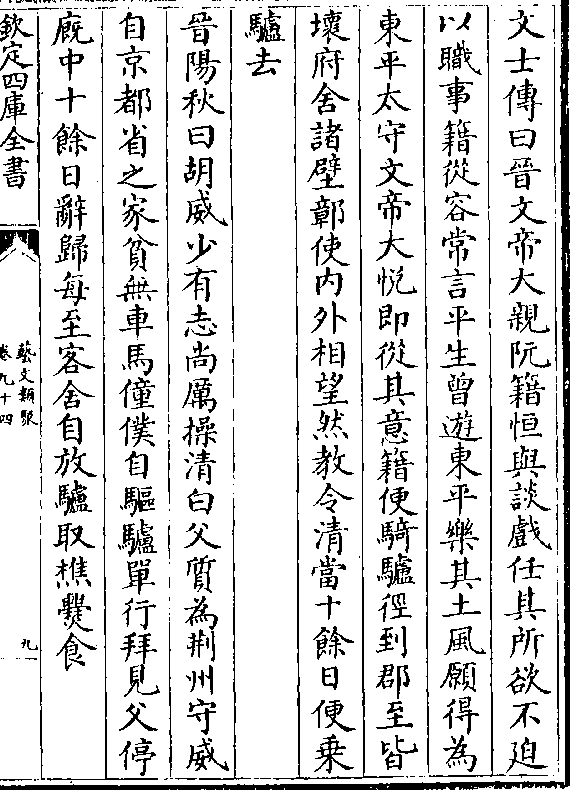 文士傳曰晉文帝大親阮籍恒與談戲任其所欲不迫
以職事籍從容常言平生曾遊東平樂其土風願得為
東平太守文帝大悅即從其意籍便騎驢徑到郡至皆
壞府舍諸壁鄣使内外相望然教令清當十餘日便乗
驢去
晉陽秋曰胡威少有志尚厲操清白父質為荆州守威
自京都省之家貧無車馬僮僕自驅驢單行拜見父停
廐中十餘日辭歸每至客舍自放驢取樵㸑食
欽定四庫全書
藝文類聚
卷九十四
九